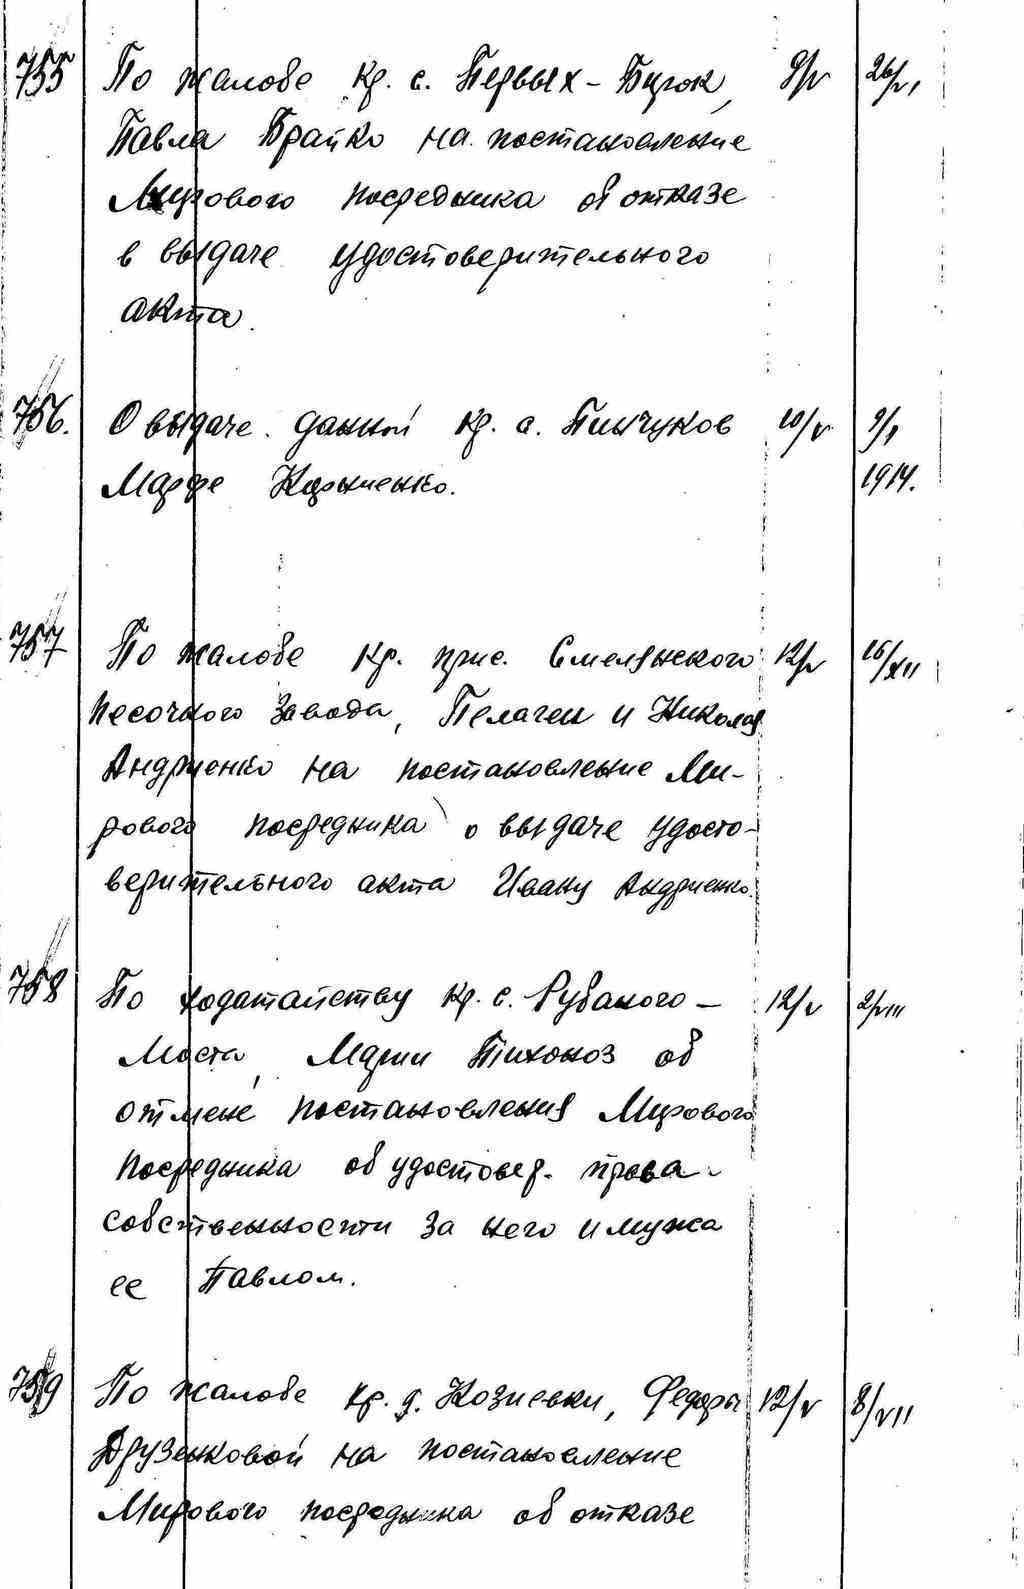 755 По жалобе кр. с. Первых-Бугок, 9/V 26/VI
Павла Брайко на постановление
Мирового посредника об отказе
в выдаче удостоверительного
акта.
756. О выдаче данной кр. с. Пинчуков 10/V 9/I
Марфе Корниенко. 1914.
757 По жалобе кр. прис. Смелянского 12/V 16/XII
песочного завода, Пелагеи и Николая
Андриенко на постановление Ми-
рового посредника о выдаче удосто-
верительного акта Ивану Андриенко.
758 По ходатайству кр. с. Рубаного- 12/V 2/VIII
Моста, Марии Тихоноз об
отмене постановления Мирового
посредника об удостовер. права
собственности за него и мужа
ее Павлом.
759 По жалобе кр. д. Козиевки, Федоры 12/V 8/VII
Друзенковой на постановление
Мирового посредника об отказе